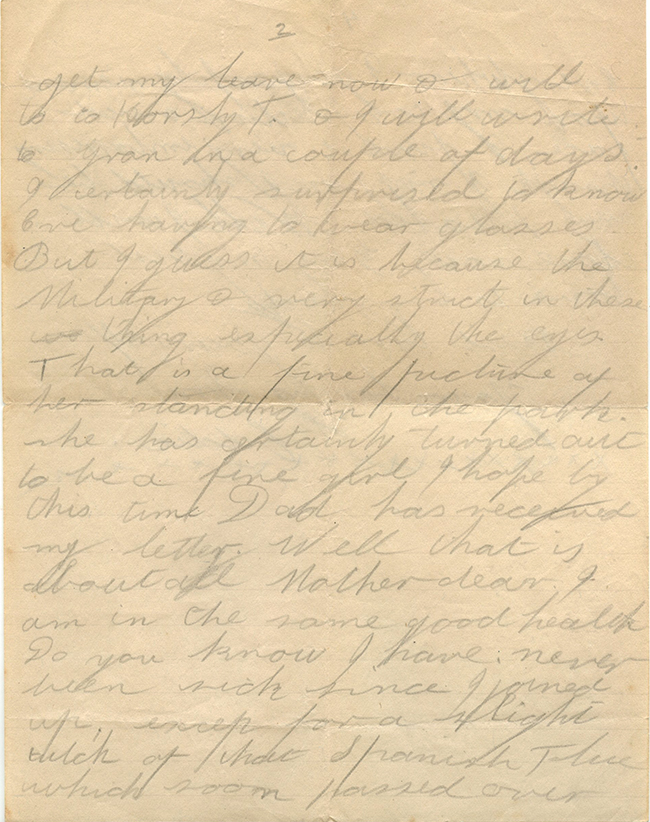 2
get my leave now & will
to to Horsly T. & I will write
to Gran in a couple of days.
I certainly surprised to know
Eve having to wear glasses.
But I guess it is because the
Military & very strict in these
thing especially the eyes
That is a fine picture of
her standing in the park.
she has certainly turned out
to be a fine girl I hope by
this time Dad has received
my letter. Well that is
about all Mother dear, I
am in the same good health
Do you know I have never
been sick since I joined
up, except for a slight
of that Spanish Flue
which soon passed over